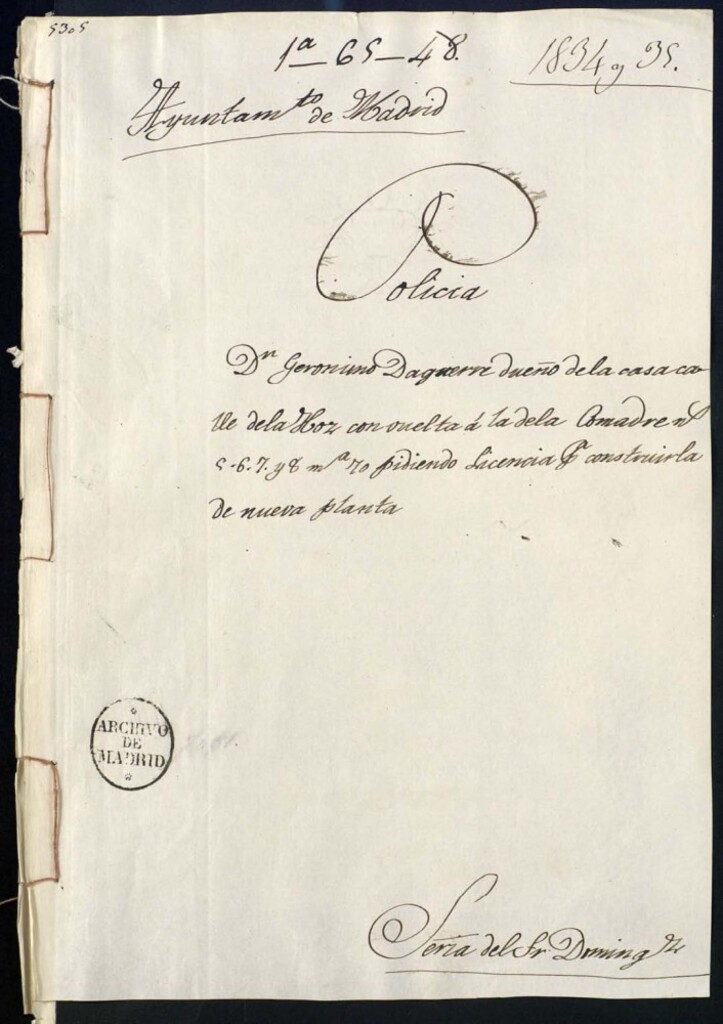 5305
1ª-65-48.
1834 y 35.
Ayuntamto de Madrid
Policia
Dn Geronimo Daguerre dueño de la casa ca-
lle dela Hoz con vuelta á la dela Comadre no
5-6.7. y 8 mª 70 pidiendo Licencia pª construirla
de nueva planta
ARCHIVO
DE
MADRID
Sería del Sr. Domingz